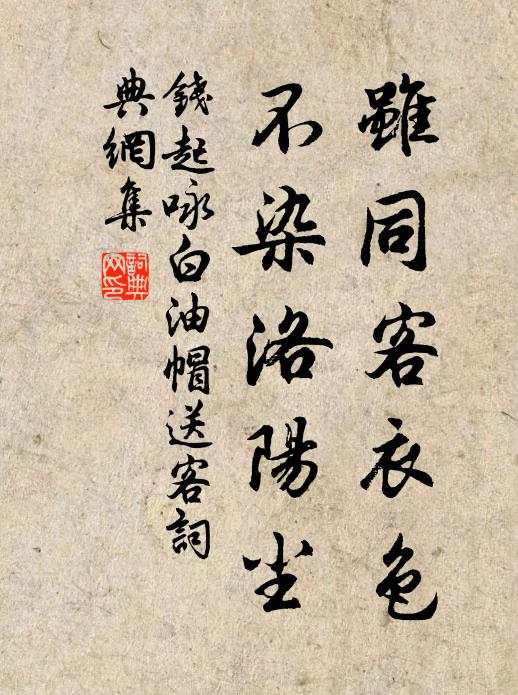 雖同客衣色
不染洛陽尘
錢起咏白油帽送客詞
典網集
詞典
网印